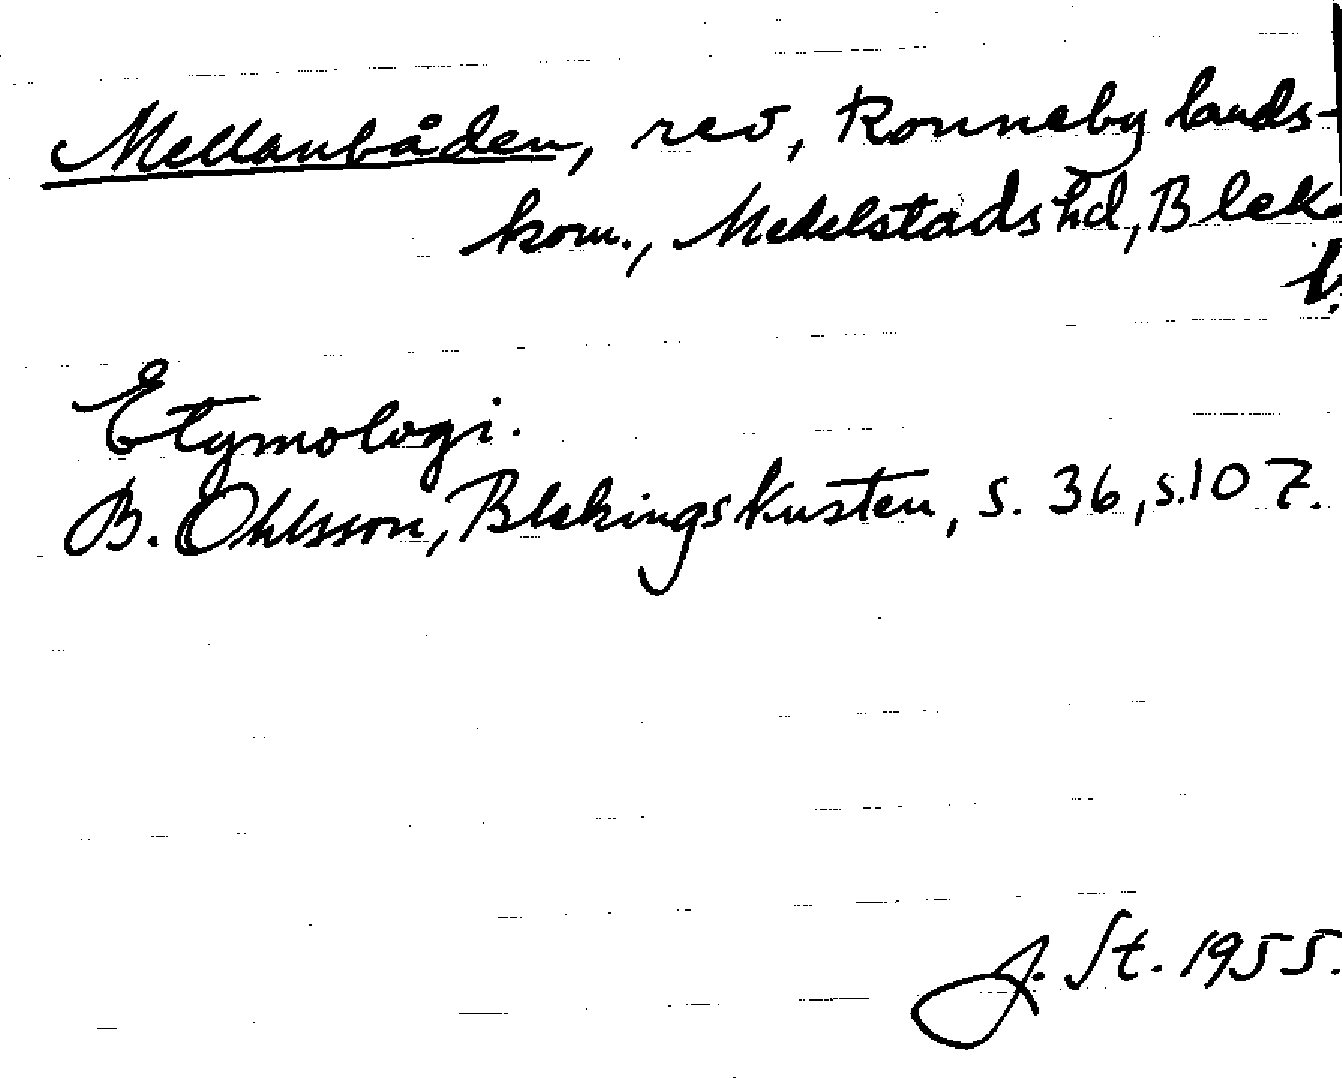 Mellanbåden, rev, Ronneby lands-
kom., Medelstads hd, Blek.
l.
Etymologi.
B. Ohlsson, Blekingskusten, s. 36, s. 107.
J. St. 1955.